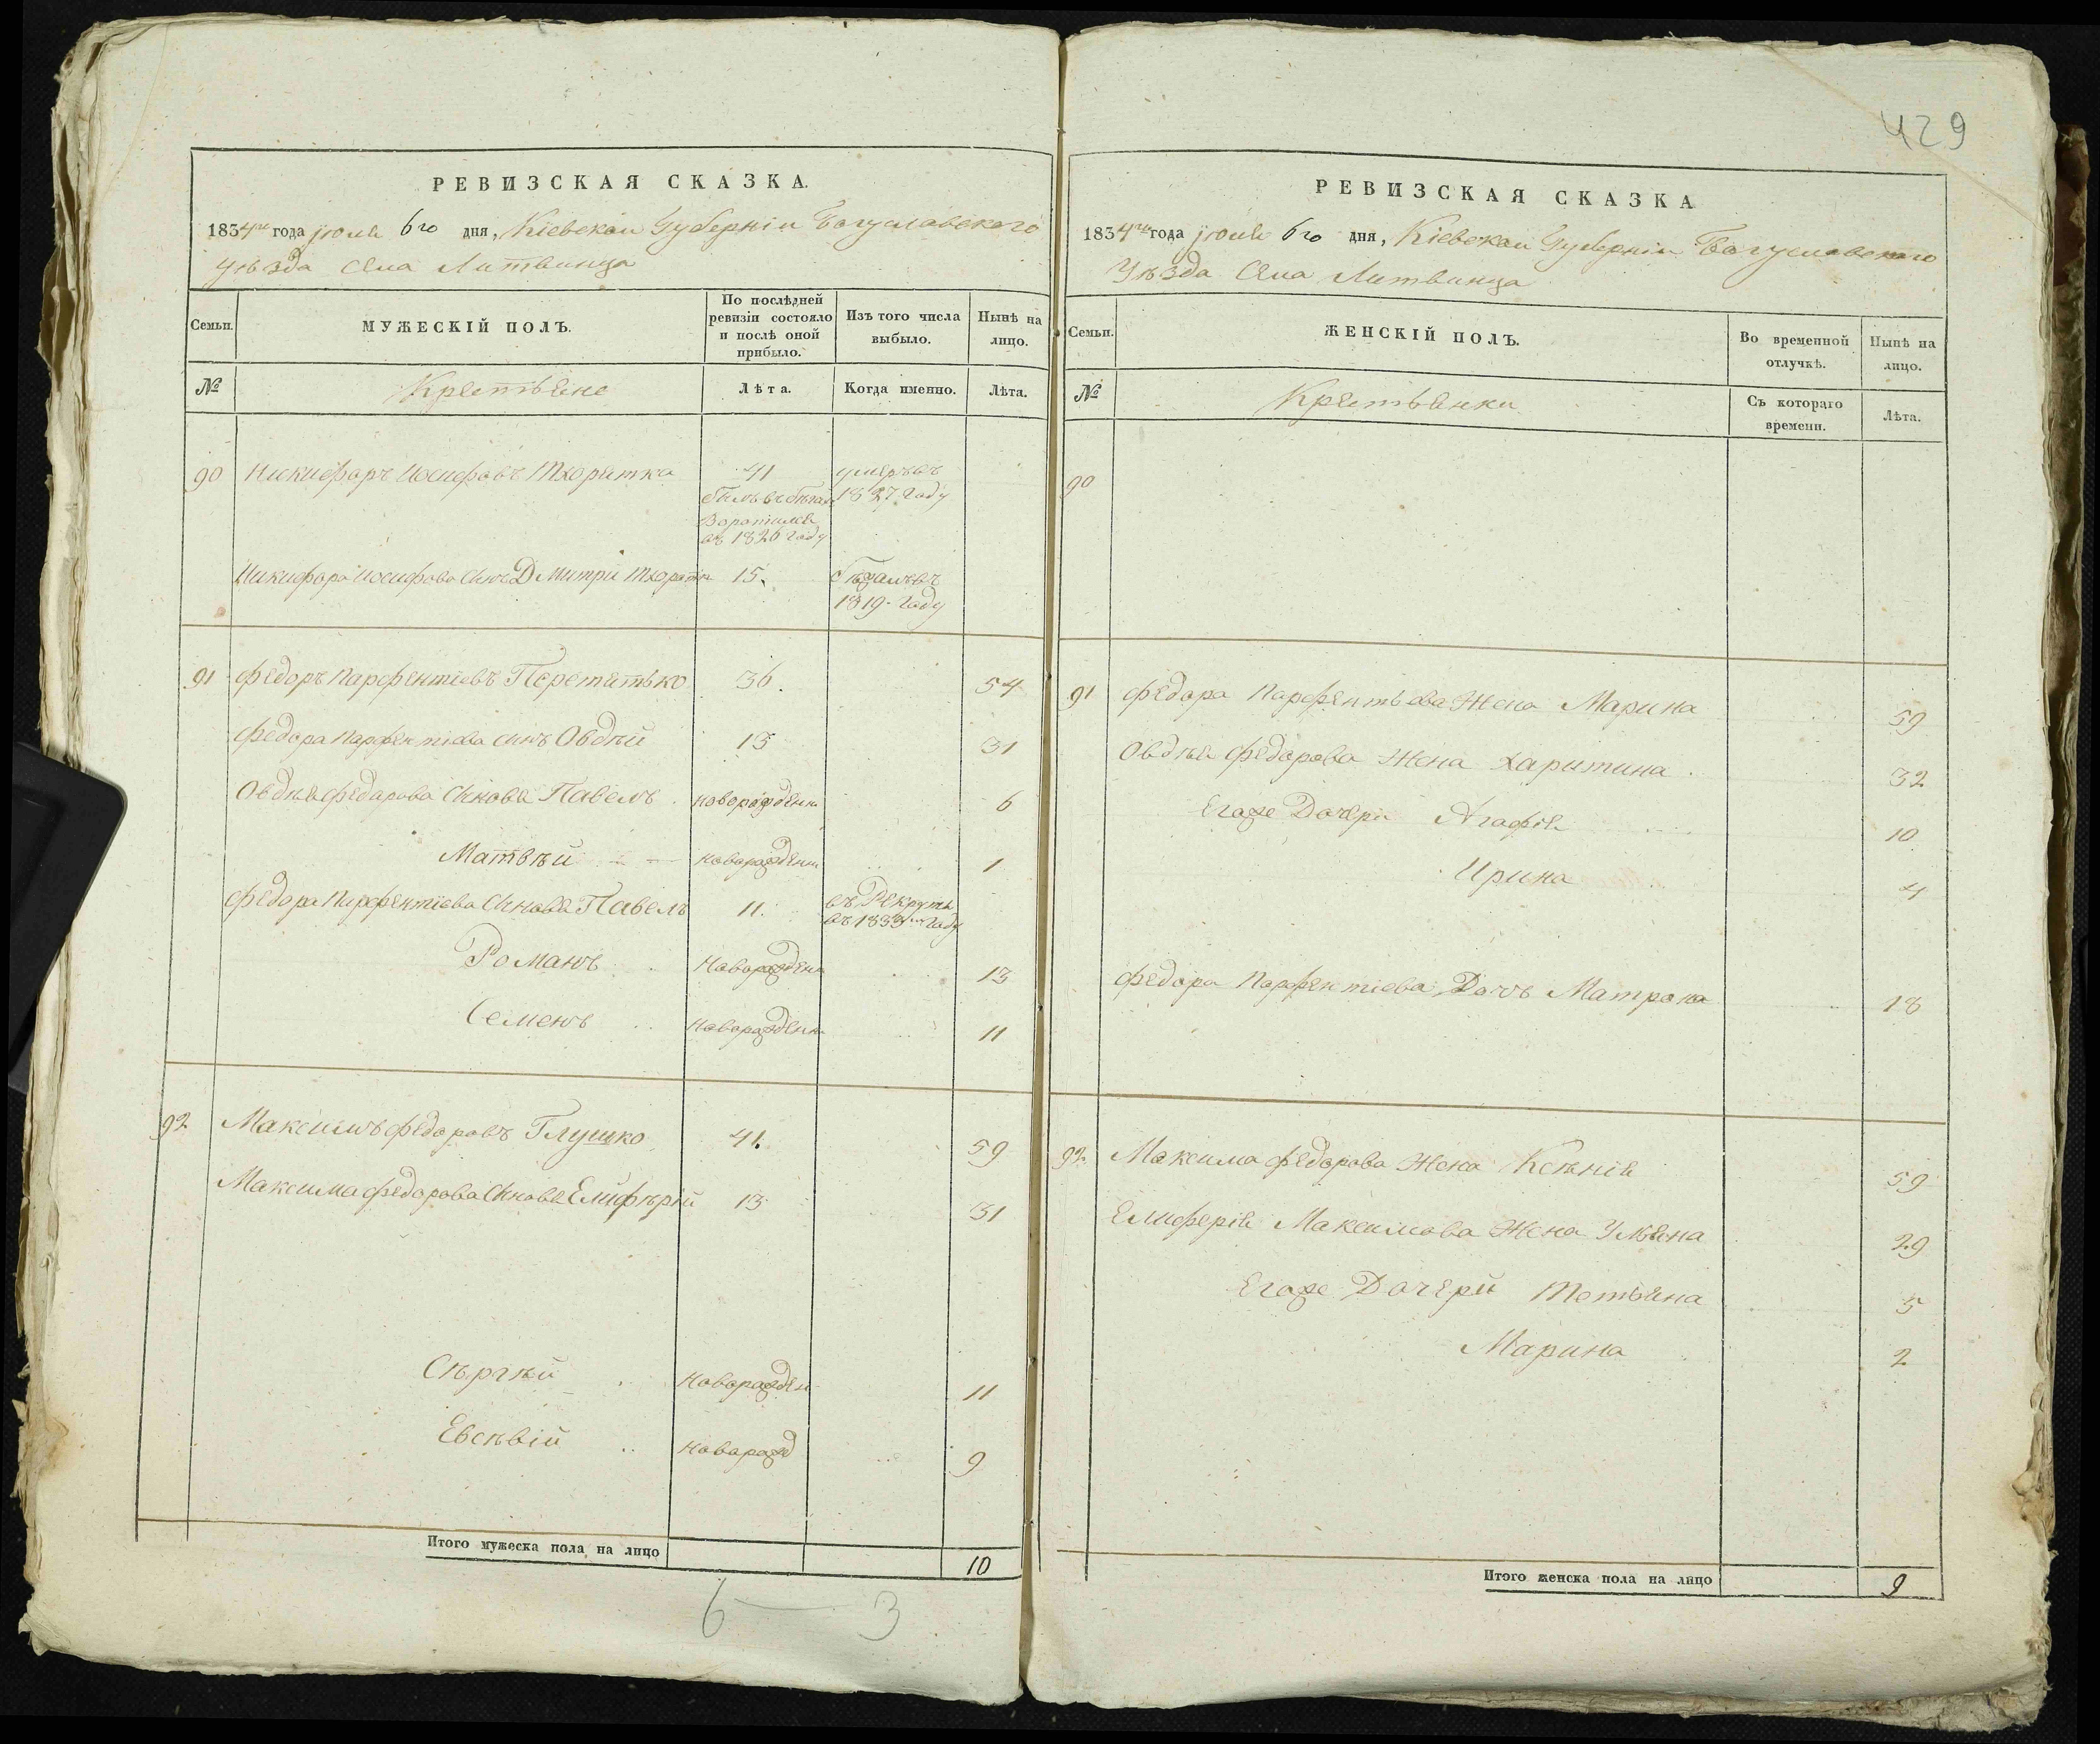 429
РЕВИЗСКАЯ СКАЗКА.
1834го года июня 6го дня, Кіевской Губерніи Богуславского
уѣзда села Литвинца
Семьи. МУЖЕСКІЙ ПОЛЪ. По послѣдней ревизіи состояло и послѣ оной прибыло. Изъ того числа выбыло. Нынѣ на лицо.
№ Крестьяне Лѣта. Когда именно. Лѣта.
90 Никифоръ Иосифовъ 41 умеръ въ
1827 году
воротился
въ 1826 году
Никифора Иосифова сынъ Дмитрій 15. бѣжалъ въ
1819 году
91 Федоръ Парфентіевъ Перетятько 36. 54
Федора Парфентіева сынъ Овдѣй 13 31
Овдѣя Федорова сыновя Павелъ новорожденн 6
Матвѣй новорожденн 1
Федора Парфентіева сыновя Павелъ 11. въ Рекруты
въ 1833м году
Романъ новорожденн 13
Семенъ новорожденн 11
92 Максимъ Федоровъ Глушко 41. 59
Максима Федорова сыновя Елифѣрій 13 31
Сѣргѣй новорожден 11
Евсѣвій новорожд 9
Итого мужеска пола на лицо 10
6 — 3
РЕВИЗСКАЯ СКАЗКА
1834го года июня 6го дня, Кіевской Губерніи Богуславского
Уѣзда села Литвинца
Семьи. ЖЕНСКІЙ ПОЛЪ. Во временной отлучкѣ. Нынѣ на лицо.
№ Крестьянки Съ котораго времени. Лѣта.
90
91 Федора Парфентьева Жена Марина 59
Овдѣя Федорова Жена Харитина 32
Егоже Дочери Агафія 10
Ирина 4
Федора Парфентіева Дочь Матрона 18
92 Максима Федорова Жена Ксѣнія 59
Елиферія Максимова Жена Ульяна 29
Егоже Дочерй Тетьяна 5
Марина 2
Итого женска пола на лицо 9